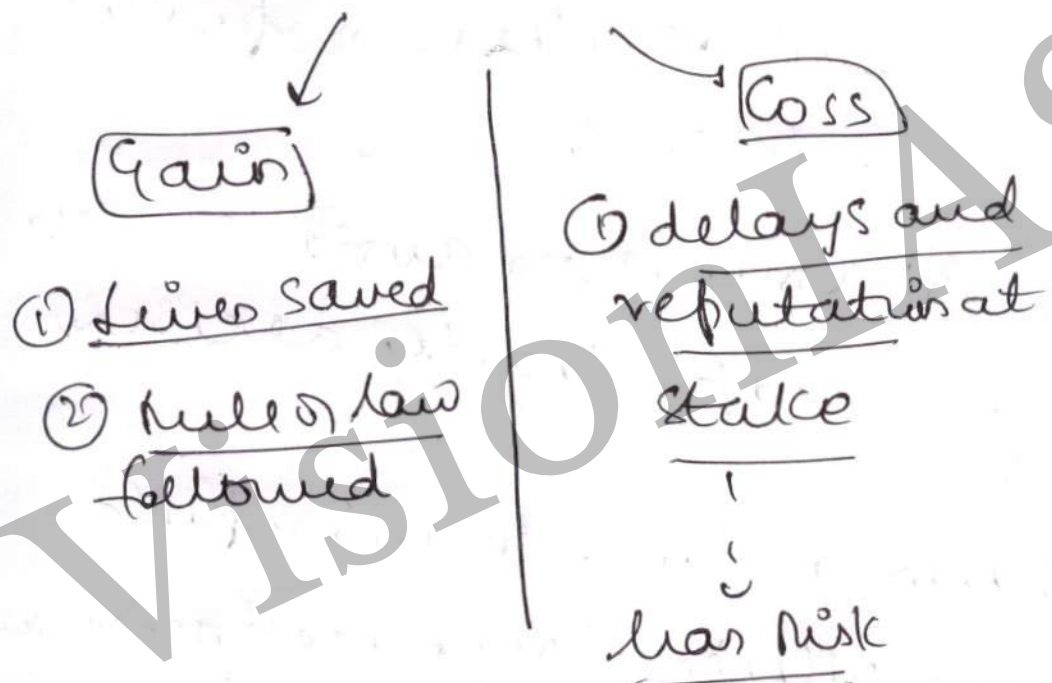 Gain
① Lives saved
② Rule of law
followed
Loss
① delays and
reputation at
stake
has risk
VisionIAS